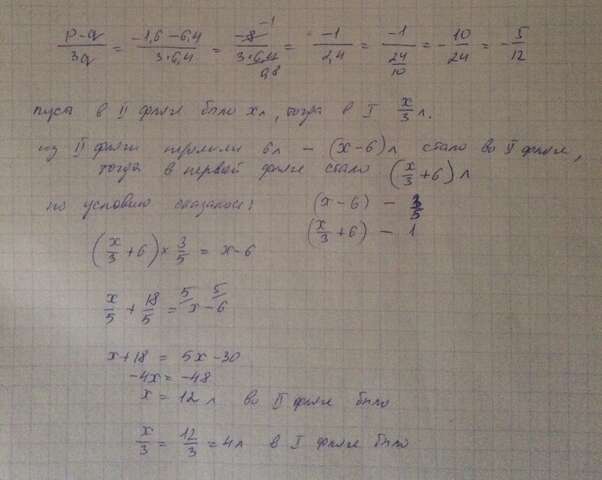 (p-q)/3q = (-1,6-6,4)/(3·6,4) = (-8)/(3·6,4) = (-1)/2,4 = (-1)/(24/10) = -10/24 = -5/12
-1
0,8
пусть в II фляге было x л, тогда в I x/3 л.
из II фляги перелили 6 л – (x-6) л стало во II фляге,
тогда в первой фляге стало (x/3+6) л
по условию сказано: (x-6) – 3/5
(x/3+6) – 1
(x/3+6)×3/5 = x-6
x/5 + 18/5 = x-6
5 5
x+18 = 5x-30
-4x = -48
x = 12 л во II фляге было
x/3 = 12/3 = 4 л в I фляге было